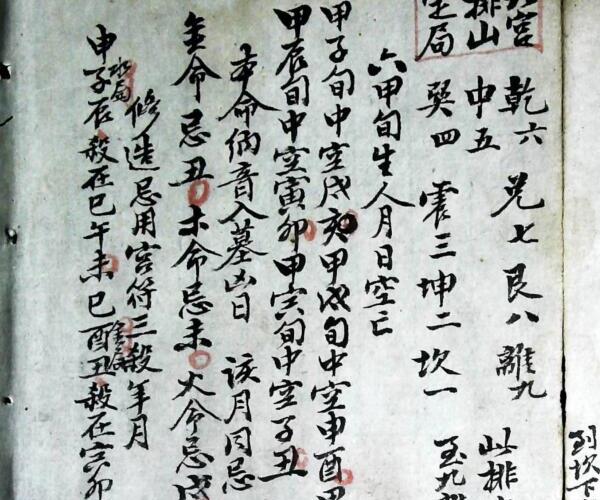 九宮 乾六 兌七 艮八 離九
排山 中五 此排
定局 巽四 震三 坤二 坎一 至九
六甲旬生人月日空亡
甲子旬中空戌亥甲戌旬中空申酉甲
甲辰旬中空寅卯甲寅旬中空子丑
本命納音入墓凶日 該月同忌
金命忌丑木命忌未火命忌戌
修造忌用宮符三殺年月
申子辰水局殺在巳午未巳酉丑金局殺在寅卯
到坎下